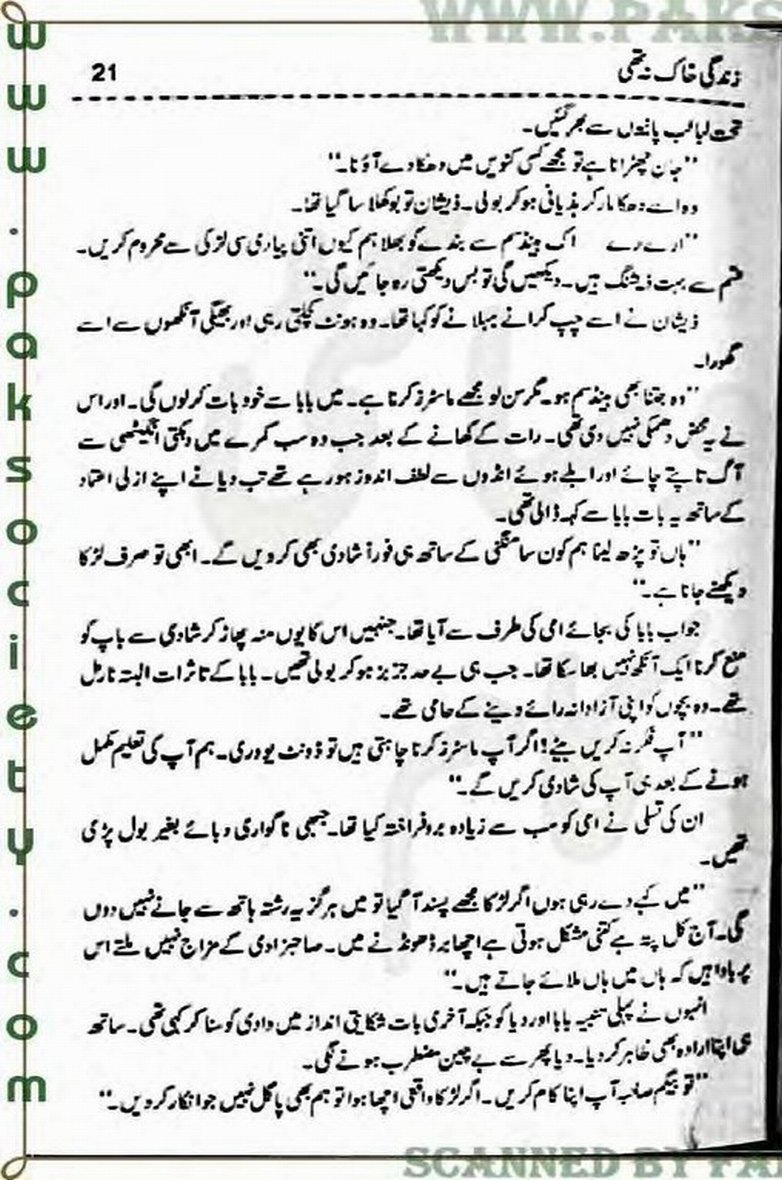 WWW.PAKS
زندگی خاک نہ تھی
21
تحت لبالب پانیوں سے بھر گئیں۔
"جان چھڑانا ہے تو مجھے کسی کنویں میں دھکا دے آؤ نا۔"
وہ اسے دھکا مار کر ہذیانی ہو کر بولی۔ ذیشان تو بوکھلا سا گیا تھا۔
"ارے رے اک ہینڈسم سے بندے کو بھلا ہم کیوں اتنی پیاری سی لڑکی سے محروم کریں۔
قسم سے بہت ڈیشنگ ہیں۔ دیکھیں گی تو بس دیکھتی رہ جائیں گی۔"
ذیشان نے اسے چپ کرانے بہلانے کو کہا تھا۔ وہ ہونٹ کچلتی رہی اور بھیگی آنکھوں سے اسے
گھورا۔
"وہ جتنا بھی ہینڈسم ہو۔ مگر سن لو مجھے ماسٹرز کرنا ہے۔ میں بابا سے خود بات کر لوں گی۔ اور اس
نے یہ محض دھمکی نہیں دی تھی۔ رات کے کھانے کے بعد جب وہ سب کمرے میں دہکتی انگیٹھی سے
آگ تاپتے چائے اور ابلے ہوئے انڈوں سے لطف اندوز ہو رہے تھے تب دیا نے اپنے ازلی اعتماد
کے ساتھ یہ بات بابا سے کہہ ڈالی تھی۔
"ہاں تو پڑھ لینا ہم کون سا منگنی کے ساتھ ہی فوراً شادی بھی کر دیں گے۔ ابھی تو صرف لڑکا
دیکھنے جانا ہے۔"
جواب بابا کی بجائے امی کی طرف سے آیا تھا۔ جنہیں اس کا یوں منہ پھاڑ کر شادی سے باپ کو
منع کرنا ایک آنکھ نہیں بھا سکا تھا۔ جب ہی بے حد جزبز ہو کر بولی تھیں۔ بابا کے تاثرات البتہ نارمل
تھے۔ وہ بچوں کو اپنی آزادانہ رائے دینے کے حامی تھے۔
"آپ فکر نہ کریں بیٹے! اگر آپ ماسٹرز کرنا چاہتی ہیں تو ڈونٹ یو وری۔ ہم آپ کی تعلیم مکمل
ہونے کے بعد ہی آپ کی شادی کریں گے۔"
ان کی تسلی نے امی کو سب سے زیادہ بروفراختہ کیا تھا۔ جبھی ناگواری دبائے بغیر بول پڑی
تھیں۔
"میں کہے دے رہی ہوں اگر لڑکا مجھے پسند آ گیا تو میں ہرگز یہ رشتہ ہاتھ سے جانے نہیں دوں
گی۔ آج کل پتہ ہے کتنی مشکل ہوتی ہے اچھا بر ڈھونڈنے میں۔ صاحبزادی کے مزاج نہیں ملتے اس
پر باوا ہیں کہ ہاں میں ہاں ملائے جاتے ہیں۔"
انہوں نے پہلی تنبیہ بابا اور دیا کو جبکہ آخری بات شکایتی انداز میں دادی کو سنا کر کہی تھی۔ ساتھ
ہی اپنا ارادہ بھی ظاہر کر دیا۔ دیا پھر سے بے چین مضطرب ہونے لگی۔
"تو بیگم صاحبہ آپ اپنا کام کریں۔ اگر لڑکا واقعی اچھا ہوا تو ہم بھی پاگل نہیں جو انکار کر دیں۔"
www.paksociety.com
SCANNED BY PA